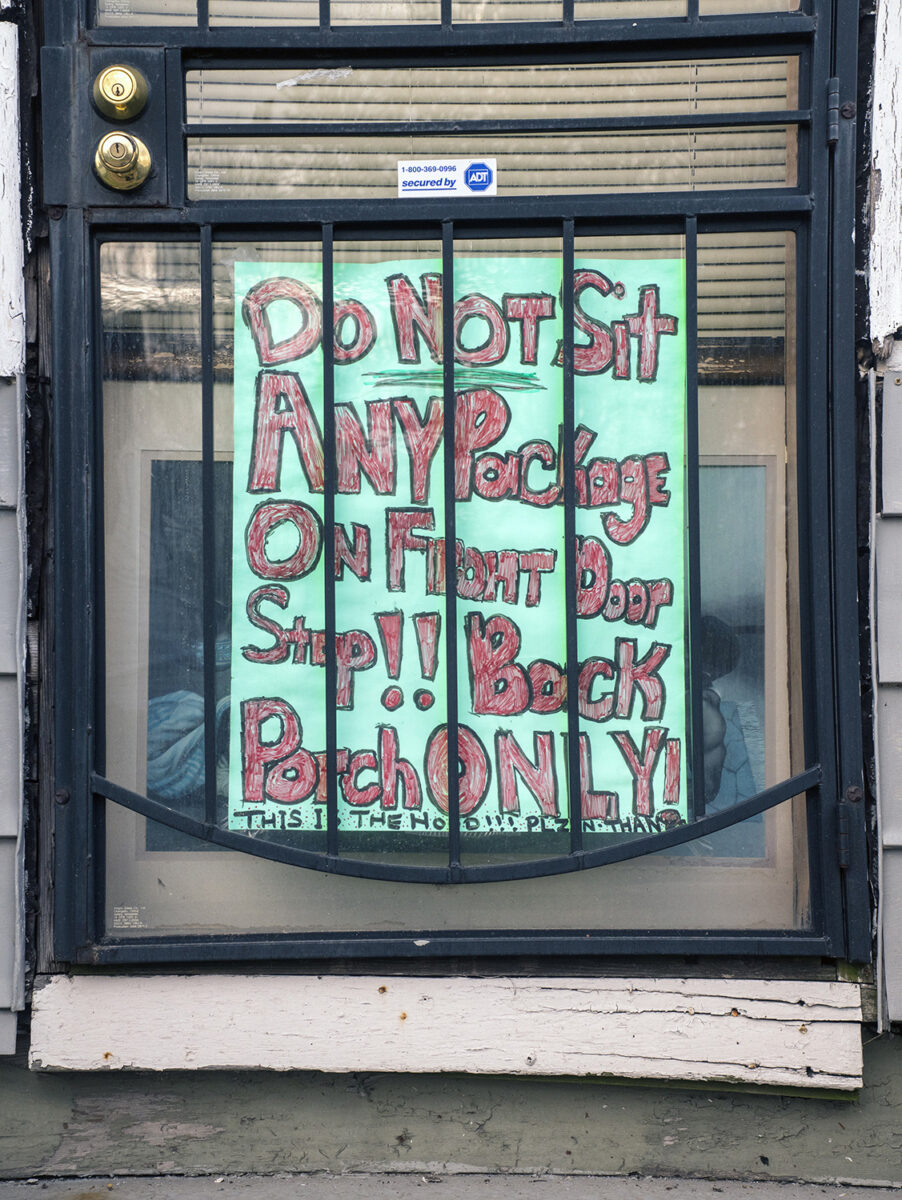 1-800-369-0996
secured by ADT
Do NOT Sit
ANY Package
ON FRONT Door
Step!! Back
Porch ONLY!
THIS I THE HO D!!!